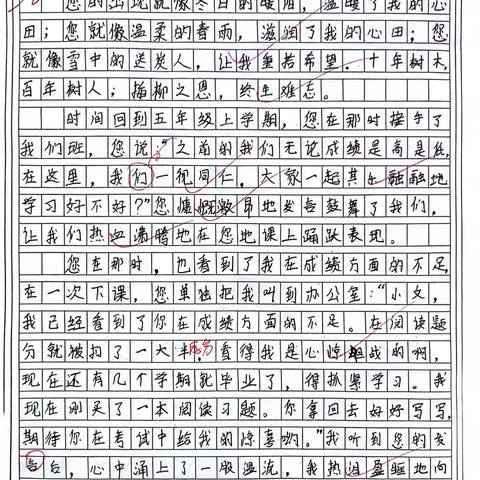 您的出现就像冬日的暖阳，温暖了我的心
田；您就像温柔的春雨，滋润了我的心田；您
就像雪中的送炭人，让我重拾希望。十年树木，
百年树人；插柳之恩，终生难忘。
时间回到五年级上学期，您在那时接手了
我们班，您说："之前的我们无论成绩是高是低，
在这里，我们一视同仁，大家一起其乐融融地
学习好不好？"您慷慨激昂地发言鼓舞了我们，
让我们热血满腾地在您地课上踊跃表现。
您在那时，也看到了我在成绩方面的不足，
在一次下课，您单独把我叫到办公室："小文，
我已经看到了你在成绩方面的不足。在阅读题
分就被扣了一大半部分，看得我是心惊胆战的啊，
现在还有几个学期就毕业了，得抓紧学习。我
现在刚买了一本阅读习题。你拿回去好好写写，
期待你在考试中给我的惊喜哟。"我听到您的发
言后，心中涌上了一股温流，我热泪盈眶地向